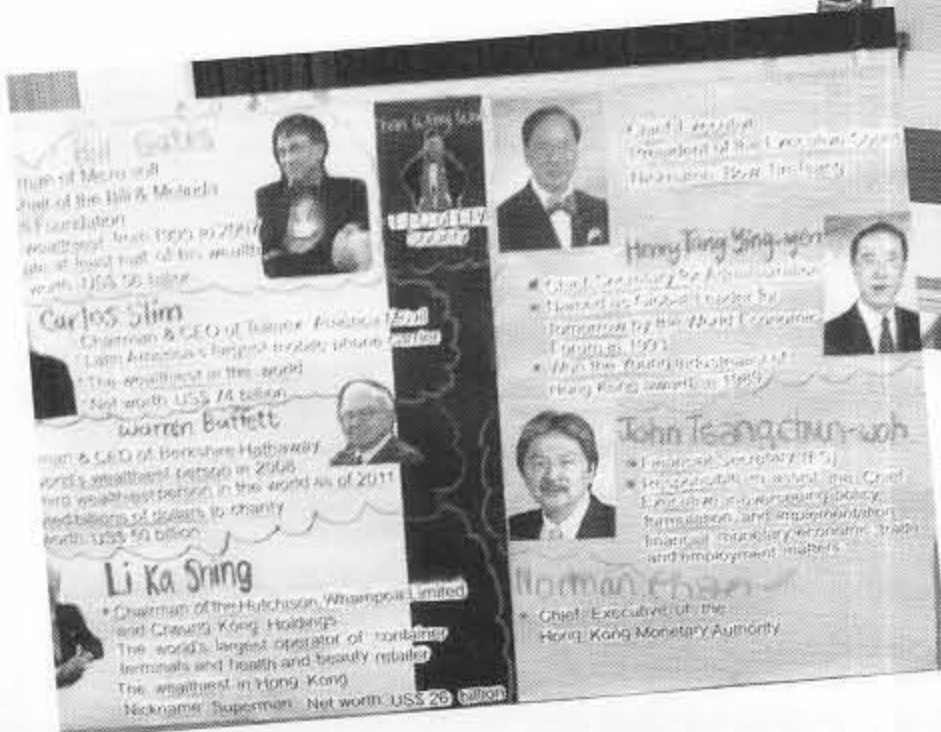 Bill Gates
of Microsoft
of the Bill & Melinda
Foundation
wealthiest from 1995 to 2007
at least half of his wealth
worth US$ 56 billion
Carlos Slim
Chairman & CEO of Telmex, America Movil
Latin America's largest mobile phone carrier
The wealthiest in the world
Net worth US$ 74 billion
Warren Buffett
& CEO of Berkshire Hathaway
world's wealthiest person in 2008
third wealthiest person in the world as of 2011
billions of dollars to charity
worth US$ 50 billion
Li Ka Shing
• Chairman of the Hutchison Whampoa Limited
and Cheung Kong Holdings
The world's largest operator of container
terminals and health and beauty retailer
The wealthiest in Hong Kong
Nickname Superman Net worth US$ 26 billion
Society
• Chief Executive
President of the Executive Council
Henry Tang Ying-yen
• Chief Secretary for Administration
• Named as Global Leader for
Tomorrow by the World Economic
Forum in
• Won the Young Industrialist of
Hong Kong award in 1989
John Tsang chun-wah
• Financial Secretary (FS)
• Responsible to assist the Chief
Executive in overseeing policy
formulation and implementation
financial monetary economic trade
and employment matters
Norman Chan
• Chief Executive of the
Hong Kong Monetary Authority